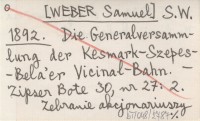 [WEBER Samuel] S.W.
1892. Die Generalversamm-
lung der Kesmark-Szepes-
-Bela'er Vicinal-Bahn. -
Zipser Bote 30, nr 27. 2.
Zebranie akcjonariuszy